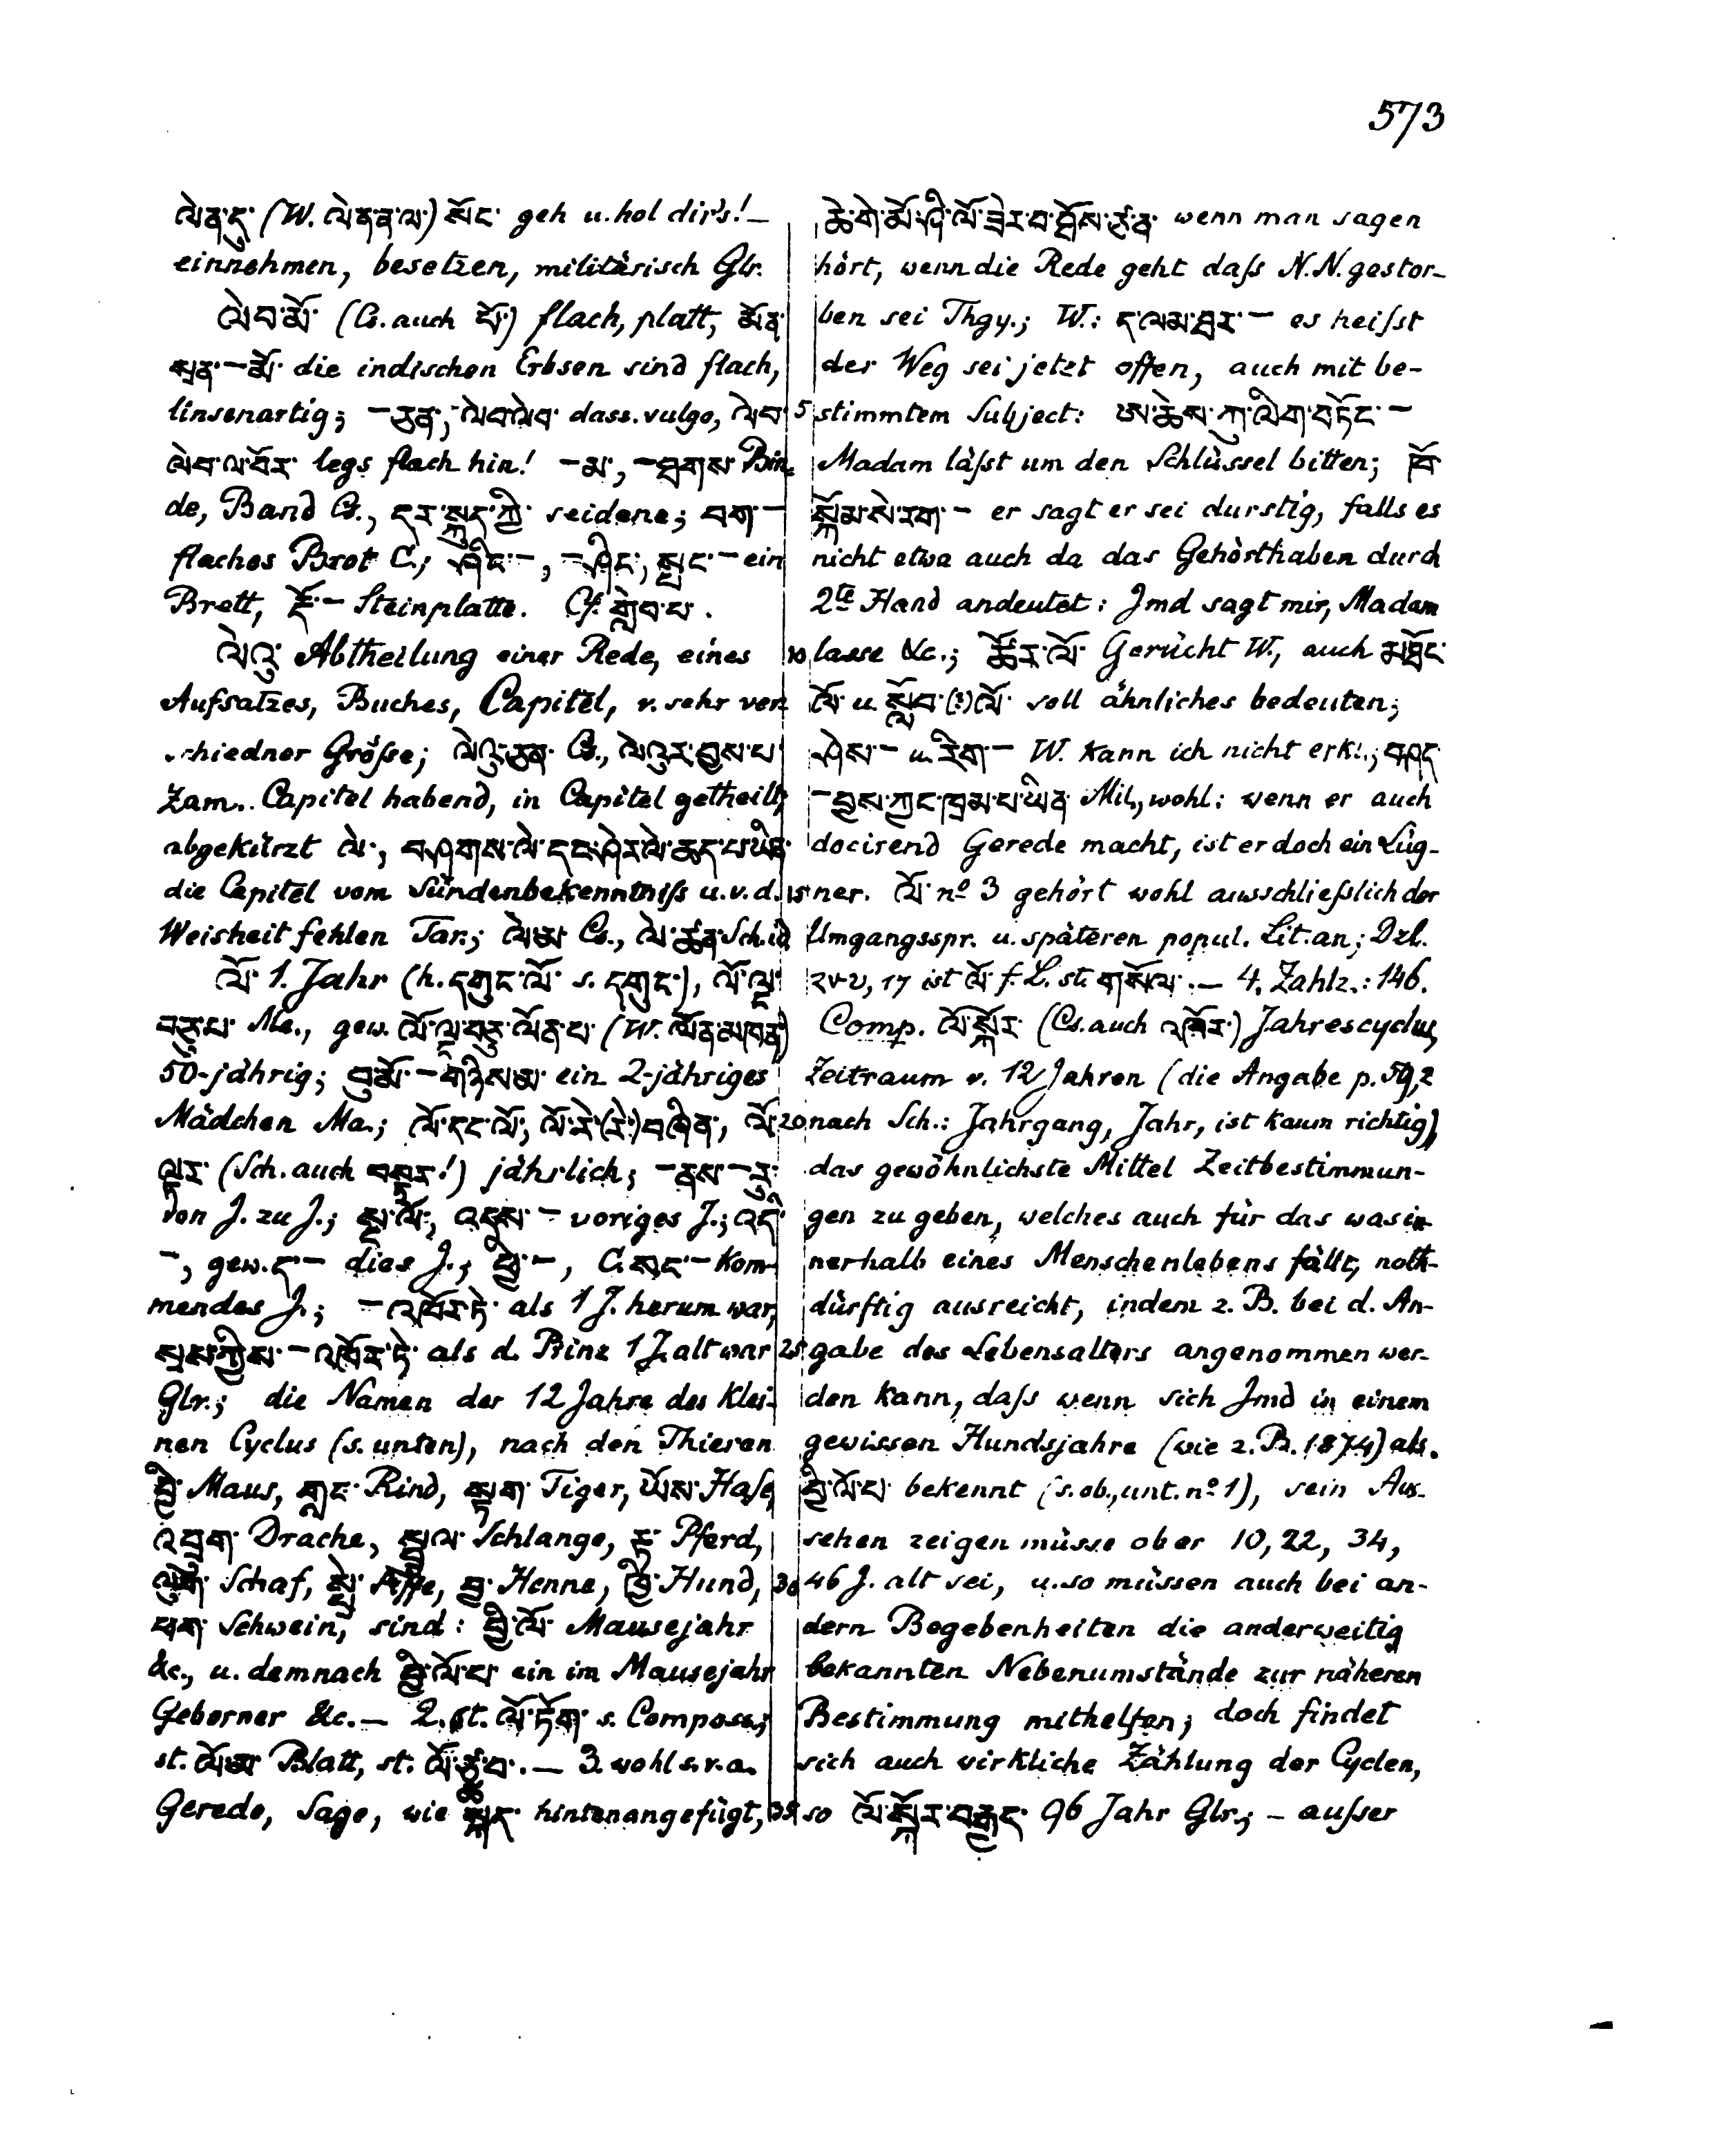 573
ལེན་དུ་ (W. ལེན་ན་ལ་) སོང་ geh u. hol dir's! –
einnehmen, besetzen, militärisch Glr.
ལེབ་མོ་ (Cs. auch པོ་) flach, platt, མོན་
སྲན་ – མོ་ die indischen Erbsen sind flach,
linsenartig; – ཅན་, ལེབ་ལེབ་ dass. vulgo, ལེབ་
ལེབ་ལ་བོར་ legs flach hin! – མ་, – ཐགས་ Bin-
de, Band Cs., དར་སྐུད་ཀྱི་ seidene; བག་ –
flaches Brot C.; ཤིང་ –, – ཤིང་, སྤང་ – ein
Brett, རྡོ་ – Steinplatte. Cf. གླེབ་པ་.
ལེའུ་ Abtheilung einer Rede, eines
Aufsatzes, Buches, Capitel, v. sehr ver-
schiedner Größe; ལེའུ་ཅན་ Cs., ལེའུར་བྱས་པ་
Zam. Capitel habend, in Capitel getheilt;
abgekürzt ལེ་, བཤགས་ལེ་དང་ཤེར་ལེ་ཆད་པ་ཡིན་
die Capitel vom Sündenbekenntniß u. v. d. 15
Weisheit fehlen Tar.; ལེམ་ Cs., ལེ་ཚན་ Sch. id
ལོ་ 1. Jahr (h. དགུང་ལོ་ s. དགུང་), ལོ་ལྔ་
བཅུ་པ་ Me., gew. ལོ་ལྔ་བཅུ་ལོན་པ་ (W. ལོན་མཁན་)
50-jährig; བུ་མོ་ – གཉིས་མ་ ein 2-jähriges
Mädchen Ma.; ལོ་དང་ལོ་, ལོ་རེ་(རེ་)བཞིན་, ལོ་ 20
ལྟར་ (Sch. auch བསྟར་!) jährlich; – ནས་ – རུ་
von J. zu J.; སྔ་ལོ་, འདས་ – voriges J.; འདི་
–, gew. ད་ – dies J.; ཕྱི་ –, C. སང་ – kom-
mendes J.; – འཁོར་ཏེ་ als 1 J. herum war,
སྲས་ཀྱིས་ – འཁོར་ཏེ་ als d. Prinz 1 J. alt war 25
Glr.; die Namen der 12 Jahre des klei-
nen Cyclus (s. unten), nach den Thieren
བྱི་ Maus, གླང་ Rind, སྟག་ Tiger, ཡོས་ Hase,
འབྲུག་ Drache, སྦྲུལ་ Schlange, རྟ་ Pferd,
ལུག་ Schaf, སྤྲེ་ Affe, བྱ་ Henne, ཁྱི་ Hund, 30
ཕག་ Schwein, sind: བྱི་ལོ་ Mausejahr
&c., u. demnach བྱི་ལོ་པ་ ein im Mausejahr
Geborner &c. – 2. st. ལོ་ཏོག་ s. Composs.;
st. ལོ་མ་ Blatt, st. ལོ་ཙཱ་བ་. – 3. wohl s. v. a.
Gerede, Sage, wie སྐད་ hintenangefügt, 35
ཆེ་གེ་མོ་ཤི་ལོ་ཟེར་བ་ཐོས་ཙ་ན་ wenn man sagen
hört, wenn die Rede geht daß N. N. gestor-
ben sei Thgy.; W.: ད་ལམ་ཐར་ – es heißt
der Weg sei jetzt offen, auch mit be-
5 stimmtem Subject: ཨ་ཆེས་ཀུ་ལིག་བཏོང་ –
Madam läßt um den Schlüssel bitten; ཁོ་
སྐོམ་སེ་རག་ – er sagt er sei durstig, falls es
nicht etwa auch da das Gehörthaben durch
2te Hand andeutet: Jmd sagt mir, Madam
10 lasse &c.; ཚོར་ལོ་ Gerücht W., auch མཐོང་
ལོ་ u. སློབ་(?)ལོ་ soll ähnliches bedeuten;
ཤེས་ – u. རིག་ – W. kann ich nicht erkl.; བཤད་
– བྱས་ཀྱང་ཁྲམ་པ་ཡིན་ Mil., wohl: wenn er auch
docirend Gerede macht, ist er doch ein Lüg-
ner. ལོ་ no 3 gehört wohl ausschließlich der
Umgangsspr. u. späteren popul. Lit. an; Dzl.
17 ist ལོ་ f. L. st. གསོལ་. – 4. Zahlz.: 146.
Comp. ལོ་སྐོར་ (Cs. auch འཁོར་) Jahrescyclus,
Zeitraum v. 12 Jahren (die Angabe p. 59, 2
nach Sch.: Jahrgang, Jahr, ist kaum richtig),
das gewöhnlichste Mittel Zeitbestimmun-
gen zu geben, welches auch für das was in-
nerhalb eines Menschenlebens fällt, noth-
dürftig ausreicht, indem z. B. bei d. An-
gabe des Lebensalters angenommen wer-
den kann, daß wenn sich Jmd in einem
gewissen Hundsjahre (wie z. B. 1874) als
བྱི་ལོ་པ་ bekennt (s. ob., unt. no 1), sein Aus-
sehen zeigen müsse ob er 10, 22, 34,
46 J. alt sei, u. so müssen auch bei an-
dern Begebenheiten die anderweitig
bekannten Nebenumstände zur näheren
Bestimmung mithelfen; doch findet
sich auch wirkliche Zählung der Cyclen,
so ལོ་སྐོར་བརྒྱད་ 96 Jahr Glr.; – außer